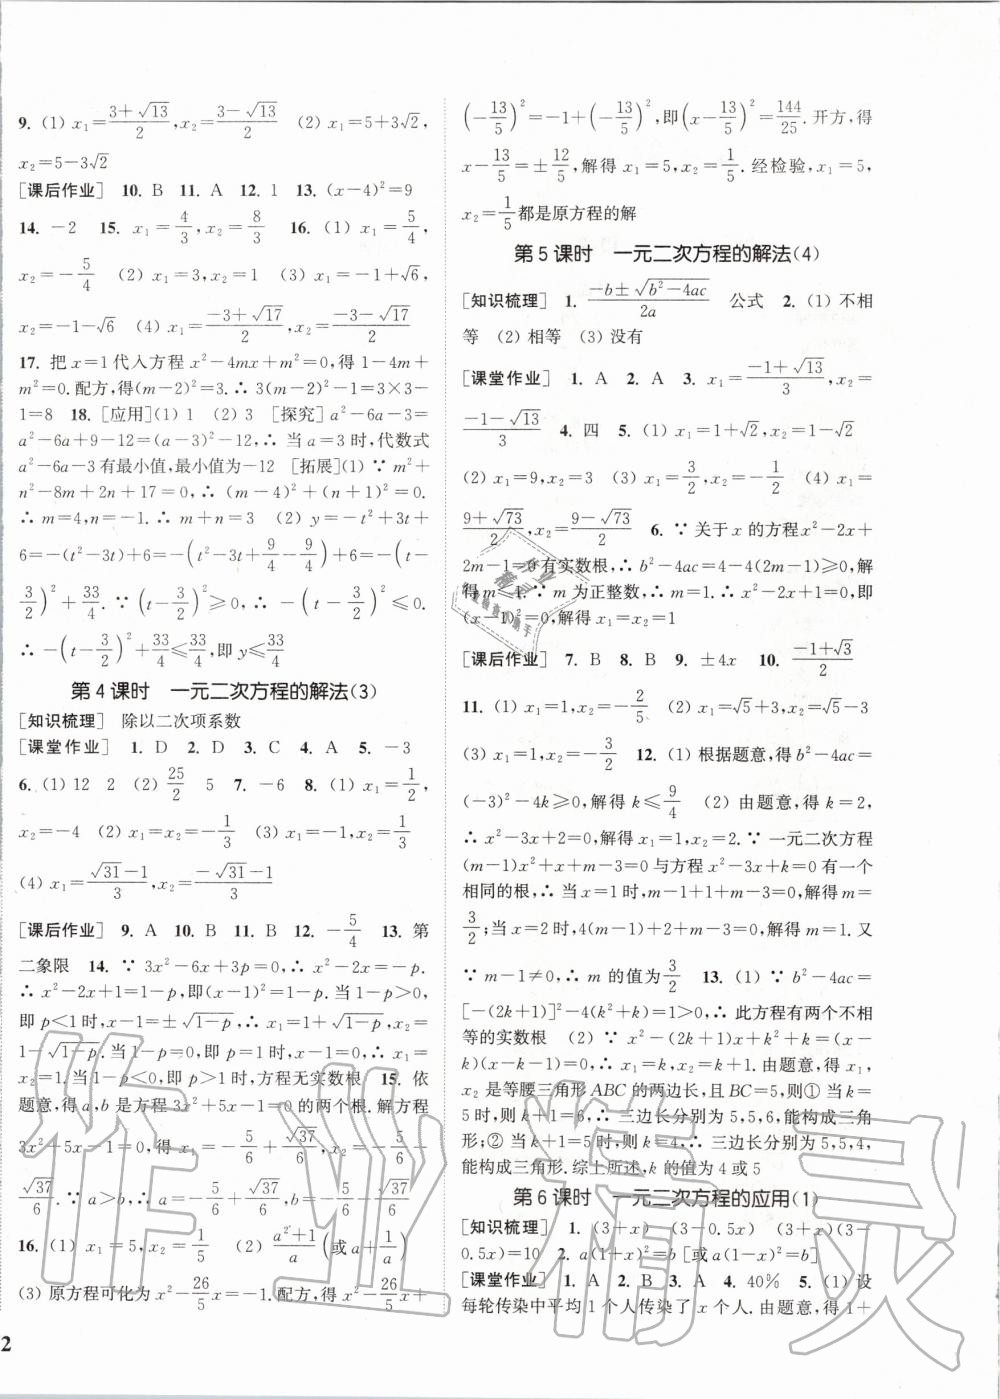 9. (1) x₁=(3+√13)/2, x₂=(3-√13)/2 (2) x₁=5+3√2,
x₂=5-3√2
[课后作业] 10. B 11. A 12. 1 13. (x-4)²=9
14. -2 15. x₁=4/3, x₂=8/3 16. (1) x₁=5/4,
x₂=-5/4 (2) x₁=3, x₂=1 (3) x₁=-1+√6,
x₂=-1-√6 (4) x₁=(-3+√17)/2, x₂=(-3-√17)/2
17. 把x=1代入方程x²-4mx+m²=0,得1-4m+
m²=0.配方,得(m-2)²=3.∴3(m-2)²-1=3×3-
1=8 18. [应用](1) 1 (2) 3 [探究]a²-6a-3=
a²-6a+9-12=(a-3)²-12,∴当a=3时,代数式
a²-6a-3有最小值,最小值为-12 [拓展](1) ∵m²+
n²-8m+2n+17=0,∴(m-4)²+(n+1)²=0.
∴m=4,n=-1.∴m+n=3 (2) y=-t²+3t+
6=-(t²-3t)+6=-(t²-3t+9/4-9/4)+6=-(t-
3/2)²+33/4.∵(t-3/2)²≥0,∴-(t-3/2)²≤0.
∴-(t-3/2)²+33/4≤33/4,即y≤33/4
第4课时 一元二次方程的解法(3)
[知识梳理] 除以二次项系数
[课堂作业] 1. D 2. D 3. C 4. A 5. -3
6. (1) 12 2 (2) 25/2 5 7. -6 8. (1) x₁=1/2,
x₂=-4 (2) x₁=x₂=-1/3 (3) x₁=-1,x₂=1/3
(4) x₁=(√31-1)/3, x₂=(-√31-1)/3
[课后作业] 9. A 10. B 11. B 12. -5/4 13. 第
二象限 14. ∵3x²-6x+3p=0,∴x²-2x=-p.
∴x²-2x+1=1-p,即(x-1)²=1-p.当1-p>0,
即p<1时,x=1±√(1-p),∴x₁=1+√(1-p),x₂=
1-√(1-p).当1-p=0,即p=1时,x-1=0,∴x₁=
x₂=1.当1-p<0,即p>1时,方程无实数根 15. 依
题意,得a,b是方程3x²+5x-1=0的两个根.解方程
3x²+5x-1=0,得x₁=-5/6+√37/6,x₂=-5/6-
√37/6.∵a>b,∴a=-5/6+√37/6,b=-5/6-√37/6
16. (1) x₁=5,x₂=1/5 (2) (a²+1)/a(或a+1/a)
(3) 原方程可化为x²-26/5x=-1.配方,得x²-26/5x+
2
(-13/5)²=-1+(-13/5)²,即(x-13/5)²=144/25.开方,得
x-13/5=±12/5,解得x₁=5,x₂=1/5.经检验,x₁=5,
x₂=1/5都是原方程的解
第5课时 一元二次方程的解法(4)
[知识梳理] 1. (-b±√(b²-4ac))/2a 公式 2. (1) 不相
等 (2) 相等 (3) 没有
[课堂作业] 1. A 2. A 3. x₁=(-1+√13)/3,x₂=
(-1-√13)/3 4. 四 5. (1) x₁=1+√2,x₂=1-√2
(2) x₁=9,x₂=2 (3) x₁=3/2,x₂=1/2 (4) x₁=
(9+√73)/2,x₂=(9-√73)/2 6. ∵关于x的方程x²-2x+
2m-1=0有实数根,∴b²-4ac=4-4(2m-1)≥0,解
得m≤1.∵m为正整数,∴m=1.∴x²-2x+1=0,即
(x-1)²=0,解得x₁=x₂=1
[课后作业] 7. B 8. B 9. ±4x 10. (-1+√3)/2
11. (1) x₁=1,x₂=-2/5 (2) x₁=√5+3,x₂=√5-3
(3) x₁=1,x₂=-3/2 12. (1) 根据题意,得b²-4ac=
(-3)²-4k≥0,解得k≤9/4 (2) 由题意,得k=2,
∴x²-3x+2=0,解得x₁=1,x₂=2.∵一元二次方程
(m-1)x²+x+m-3=0与方程x²-3x+k=0有一个
相同的根,∴当x=1时,m-1+1+m-3=0,解得m=
3/2;当x=2时,4(m-1)+2+m-3=0,解得m=1.又
∵m-1≠0,∴m的值为3/2 13. (1) ∵b²-4ac=
[-(2k+1)]²-4(k²+k)=1>0,∴此方程有两个不相
等的实数根 (2) ∵x²-(2k+1)x+k²+k=0,即
(x-k)(x-k-1)=0,∴x₁=k,x₂=k+1.由题意,得x₁,
x₂是等腰三角形ABC的两边长,且BC=5,则① 当k=
5时,则k+1=6,∴三边长分别为5,5,6,能构成三角
形;② 当k+1=5时,则k=4,∴三边长分别为5,5,4,
能构成三角形.综上所述,k的值为4或5
第6课时 一元二次方程的应用(1)
[知识梳理] 1. (3+x) (3-0.5x) (3+x)(3-
0.5x)=10 2. a(1+x)²=b[或a(1-x)²=b]
[课堂作业] 1. A 2. A 3. A 4. 40% 5. (1) 设
每轮传染中平均1个人传染了x个人.由题意,得1+
作业精灵